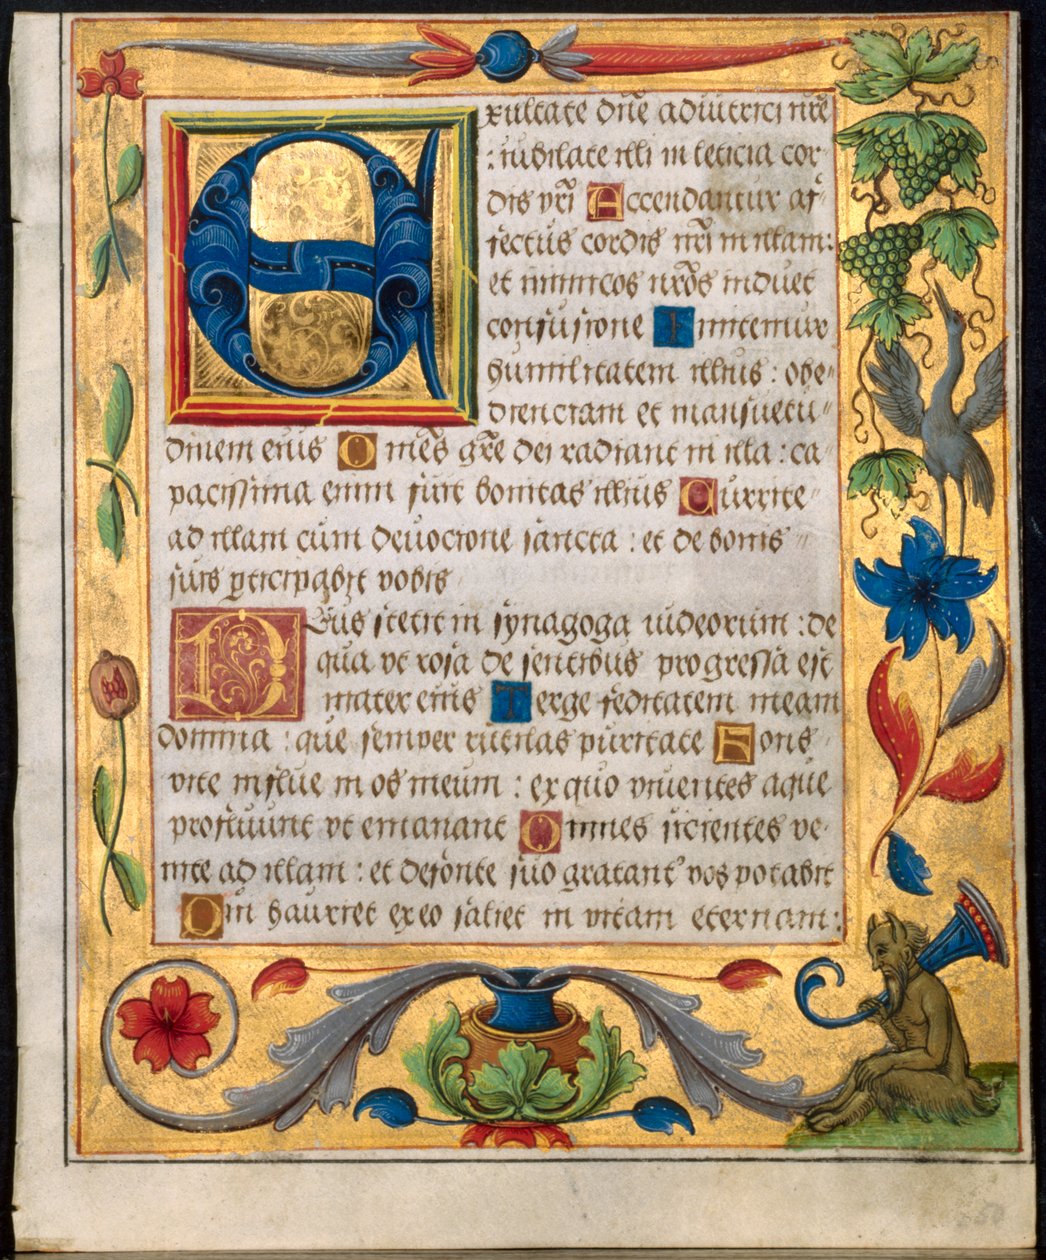 Exultate dñe adiutrici nrẽ
: iubilate illi in leticia cor-
dis vrĩ Accendantur af-
fectus cordis nrĩ in illam:
et inimicos nrõs induet
confusione Imitemur
humilitatem illius : obe-
dienciam et mansuetu-
dinem eius Omẽs grẽ dei radiant in illa : ca
pacissima enim fuit bonitas illius Currite
ad illam cum deuocione sancta : et de bonis
suis pticipabit vobis
Deus stetit in synagoga iudeorum : de
qua vt rosa de sentibus progressa est
mater eius Terge feditatem meam
domina : que semper rutilas puritate Fons
vite influe in os meum : ex quo viuentes aque
profluunt vt emanant Omnes sicientes ve-
nite ad illam : et de fonte suo gratant' vos potabit
Qui hauriet ex eo saliet in vitam eternam :
50